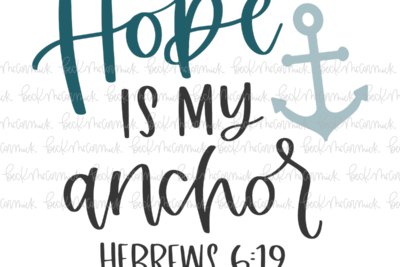 Hope
IS MY
anchor
HEBREWS 6:19